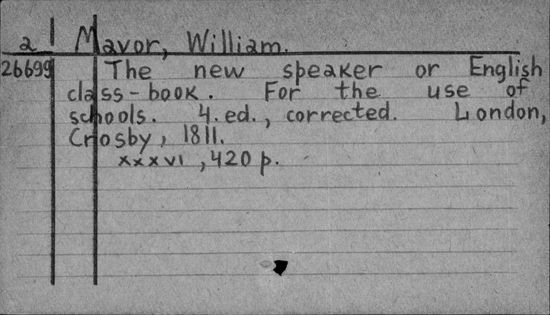 a Mavor, William.
26699 The new speaker or English
class-book. For the use of
schools. 4. ed., corrected. London,
Crosby, 1811.
xxxvi, 420 p.